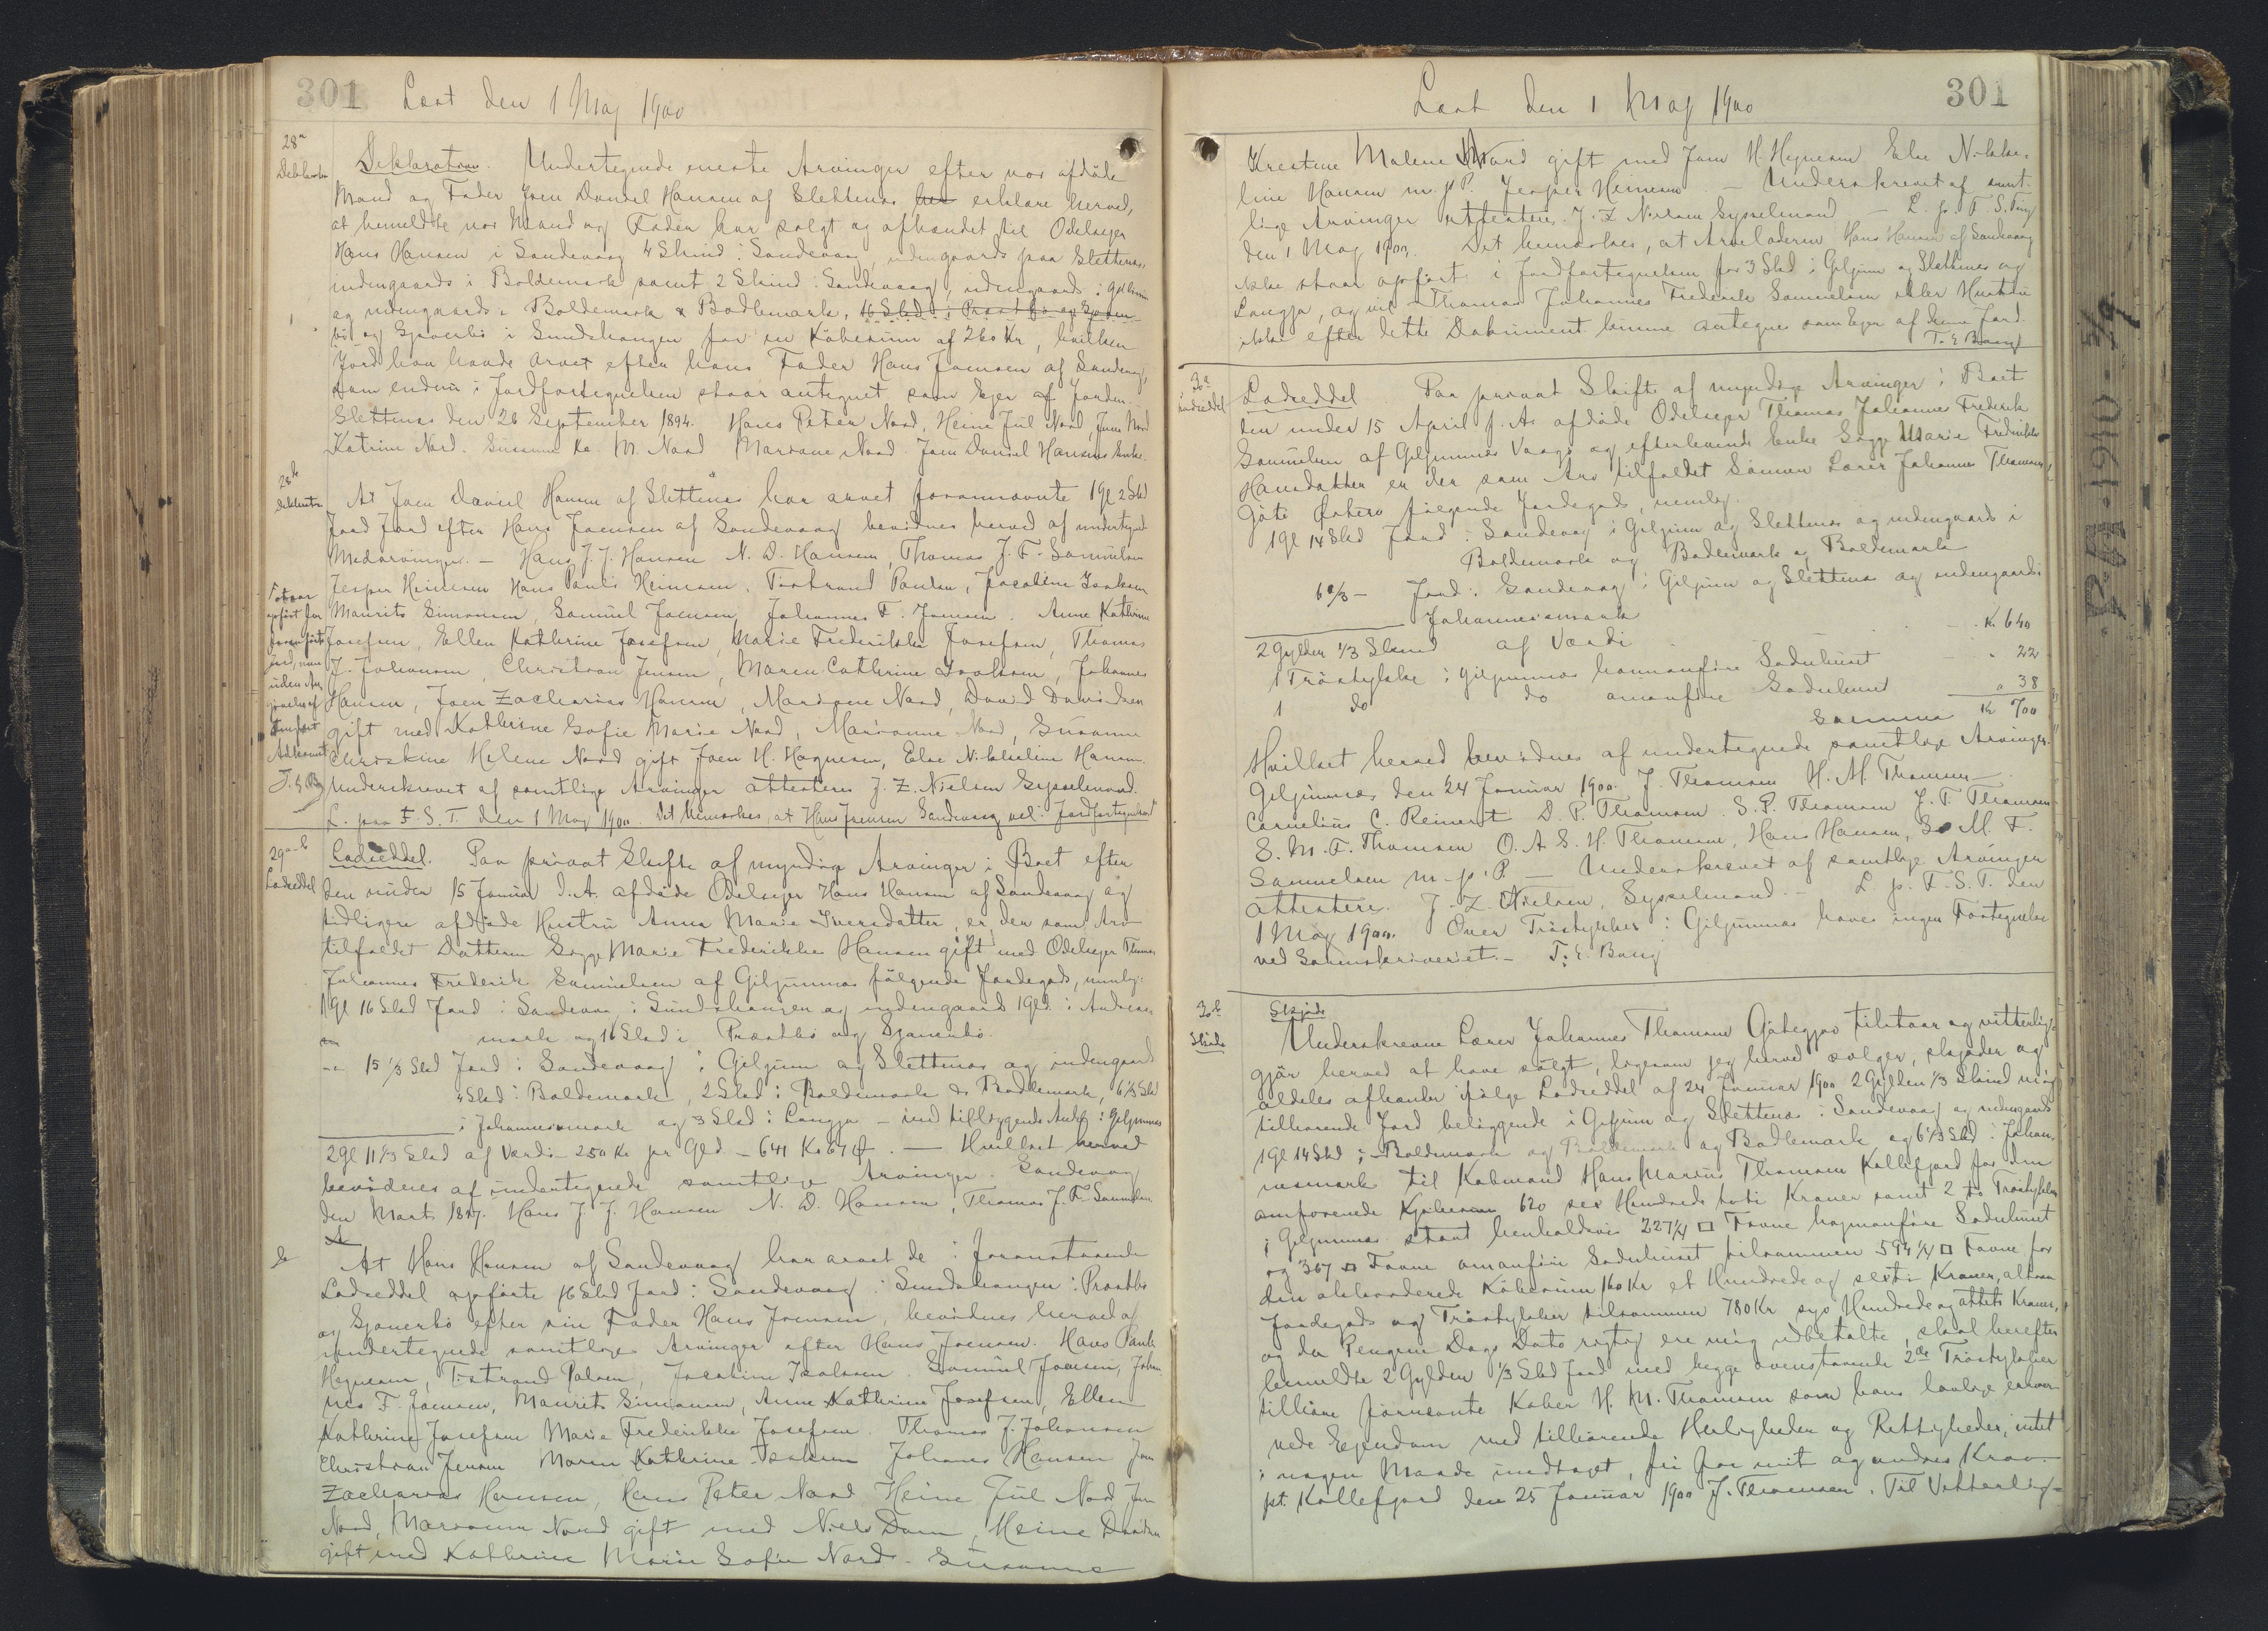 301 Læst den 1 Maj 1900
28a
Deklaration
Deklaration. Undertegnede eneste Arvinger efter vor afdöde
Mand og Fader Joen Daniel Hansen af Slettenæs erklære herved,
at bemeldte vor Mand og Fader har solgt og afhændet til Odelsejer
Hans Hansen i Sandevaag 4 Skind i Sandevaag, udengaards paa Slettenæs,
indengaards i Boldemark samt 2 Skind i Sandevaag, udengaards i Giljum
og indengaards i Boldemark & Bodlemark, 16 Skd i Præstbö og Gjæner-
bö og Gjænerbö i Sundshangen for en Købesum af 260 Kr, hvilken
Jord han havde arvet efter hans Fader Hans Joensen af Sandevaag,
som endnu i Jordfortegnelsen staar antegnet som Ejer af Jorden.
Slettenæs den 26 September 1894. Hans Peter Nord, Heine Jul Nord, Joen Nord
Katrine Nord. Susanne Ka. M. Nord Mariane Nord. Joen Daniel Hansens Enke.
28b
Deklaration
At Joen Daniel Hansen af Slettenæs har arvet forannævnte 1 Gl 2 Skd
Jord efter Hans Joensen af Sandevaag bevidnes herved af undertegnede
Medarvinger. – Hans J. J. Hansen N. D. Hansen, Thomas J. F. Samuelsen
Jesper Heinesen Hans Pauli Heinesen, Tistrand Poulsen, Jacobine Isaksen
Maurits Simonsen, Samuel Joensen Johannes F. Joensen. Anne Kathrine
Josefsen, Ellen Kathrine Josefsen, Marie Frederikke Josefsen, Thomas
J. Johansen, Christian Jensen, Maren Cathrine Isaksen, Johannes
Hansen, Joen Zacharias Hansen, Mariane Nord, David Davidsen
gift med Kathrine Sofie Marie Nord, Marianne Nord, Susanne
Christine Helene Nord gift Joen H. Høgnesen, Else Nikkeline Hansen.
Underskrevet af samtlige Arvinger attesteres J. Z. Nielsen Sysselmand.
L. paa F. S. T. den 1 Maj 1900. Det bemærkes, at Hans Joensen Sandevaag vel i Jordfortegnelsen
staar
opført for
Jord, men
uden An-
givelse af
Adkomst
T. E. B
29a-b
Lodseddel
Lodseddel. Paa privat Skifte af myndige Arvinger i Boet efter
den under 15 Januar d. A. afdöde Odelsejer Hans Hansen af Sandevaag og
tidligere afdöde Hustru Anna Marie Iversdatter, er der som Arv
tilfaldet Datteren Sigga Marie Frederikke Hansen gift med Odelsejer Thomas
Johannes Frederik Samuelsen af Giljumnæs fölgende Jordegods, nemlig:
1 Gl 16 Skd Jord i Sandevaag i Sundshangen og indengaard 1 Gld i Andreas
mark og 16 Skd i Præstbö og Gjænerbö.
" – 15 1/3 Skd Jord i Sandevaag i Giljum og Slettenæs og indengaard
4 Skd i Boldemark, 2 Skd i Boldemark & Bodlemark, 6 1/3 Skd
i Johannesmark og 3 Skd i Langja – med tilliggende Andel i Giljumnæs
2 Gl 11 1/3 Skd af Værdi 250 Kr pr Gld – 641 Kr 67 Ø. — Hvilket herved
bevidnes af undertegnede samtlige Arvinger. Sandevaag
den Marts 1897. Hans J. J. Hansen N. D. Hansen, Thomas J. F. Samuelsen
b
At Hans Hansen af Sandevaag har arvet de i foranstaaende
Lodseddel opførte 16 Skd Jord i Sandevaag i Sundshangen i Præstbö
og Gjænerbö efter sin Fader Hans Joensen, bevidnes herved af
undertegnede samtlige Arvinger efter Hans Joensen. Hans Pauli
Høgnesen, Tistrand Polsen, Jacobine Isaksen Samuel Joensen, Johan
nes F. Joensen, Maurits Simonsen, Anne Kathrine Josefsen, Ellen
Kathrine Josefsen Marie Frederikke Josefsen. Thomas J. Johansen
Christian Jensen Maren Kathrine Isaksen Johanes Hansen Joen
Zacharias Hansen, Hans Peter Nord Heine Jul Nord Joen
Nord, Marianne Nord gift med Niels Dam, Heine Davidsen
gift med Kathrine Marie Sofie Nord. Susanne
Læst den 1 Maj 1900 301
Kristine Malene Nord gift med Joen H. Høgnesen Else Nikke-
line Hansen m. p. P. Jesper Heinesen. – Underskrevet af samt-
lige Arvinger attesteres. J. Z. Nielsen Sysselmand – L. p. F. S. Ting
den 1 Maj 1900. Det bemærkes, at Arveladeren Hans Hansen af Sandevaag
ikke staar opført i Jordfortegnelsen for 3 Skd i Giljum og Slettenæs og
Langja, og vil Thomas Johannes Frederik Samuelsen eller Hustru
ikke efter dette Dokument kunne antegnes som Ejer af denne Jord.
T. E. Bang
30a
Lodseddel
Lodseddel Paa privat Skifte af myndige Arvinger i Boet
den under 15 April f. A. afdöde Odelsejer Thomas Johannes Frederik
Samuelsen af Giljumnæs Vaagø og efterlevende Enke Sigga Marie Frederikke
Hansdatter er der som Arv tilfaldet Sönnen Lærer Johannes Thomasen,
Göte Østerø fölgende Jordegods, nemlig.
1 Gl 14 Skd Jord i Sandevaag i Giljum og Slettenæs og indengaards i
Boldemark og Bodlemark og Boldemark
6 1/3 – Jord i Sandevaag i Giljum og Slettenæs og indengaards i
Johannesmark
2 Gylden 1/3 Skind af Værdi – Kr 640
1 Tröstykke i Giljumnæs hannanfire Soduhuset " 22
1 do do omanfire Soduhuset " 38
Summa Kr 700
Hvilket herved bevidnes af undertegnede samtlige Arvinger.
Giljumnæs den 24 Januar 1900. J. Thomsen H. M. Thomsen –
Cornelius C. Reinert D. P. Thomsen. S. P. Thomsen J. T. Thomsen
E. M. F. Thomsen O. A. S. H. Thomsen, Hans Hansen, S. M. F.
Samuelsen m. p. P – Underskrevet af samtlige Arvinger
attestere. J. Z. Nielsen, Sysselmand. – L. p. F. S. T. den
1 Maj 1900. Over Tröstykker i Giljumnæs haves ingen Fortegnelse
ved Sorenskriveriet. – T. E. Bang
30b
Skjøde
Skjøde
Underskrevne Lærer Johannes Thomsen Götegjov tilstaar og vitterlig-
gjör herved at have solgt, ligesom jeg herved sælger, skjøder og
aldeles afhænder ifölge Lodseddel af 24 Januar 1900 2 Gylden 1/3 Skind mig
tilhørende Jord beliggende i Giljum og Slettenæs i Sandevaag og indengaards
1 Gl 14 Skd i Boldemark og Boldemark og Bodlemark og 6 1/3 Skd i Johan-
nesmark til Købmand Hans Marius Thomsen Kollefjord for den
omforenede Kjøbesum 620 sex Hundrede tyve Kroner samt 2 to Tröstykker
i Giljumnæs stort henholdsvis 227 1/4 □ Favne hannanfire Soduhuset
og 367 □ Favne omanfire Soduhuset tilsammen 594 1/4 □ Favne for
den akkorderede Købesum 160 Kr et Hundrede og sexti Kroner, altsaa
Jordegods og Tröstykker tilsammen 780 Kr syv Hundrede og ottets Kroner,
og da Pengene Dags Dato rigtig ere mig udbetalte, skal herefter
bemeldte 2 Gylden 1/3 Skd Jord med begge ovenstaaende 2de Tröstykker
tilhøre fornævnte Køber H. M. Thomsen som hans lovlige erhver-
vede Ejendom med tilhørende Herligheder og Rettigheder, intet
i nogen Maade undtaget, fri for mit og andres Krav.
pt. Kollefjord den 25 Januar 1900 J. Thomsen. Til Vitterlig-